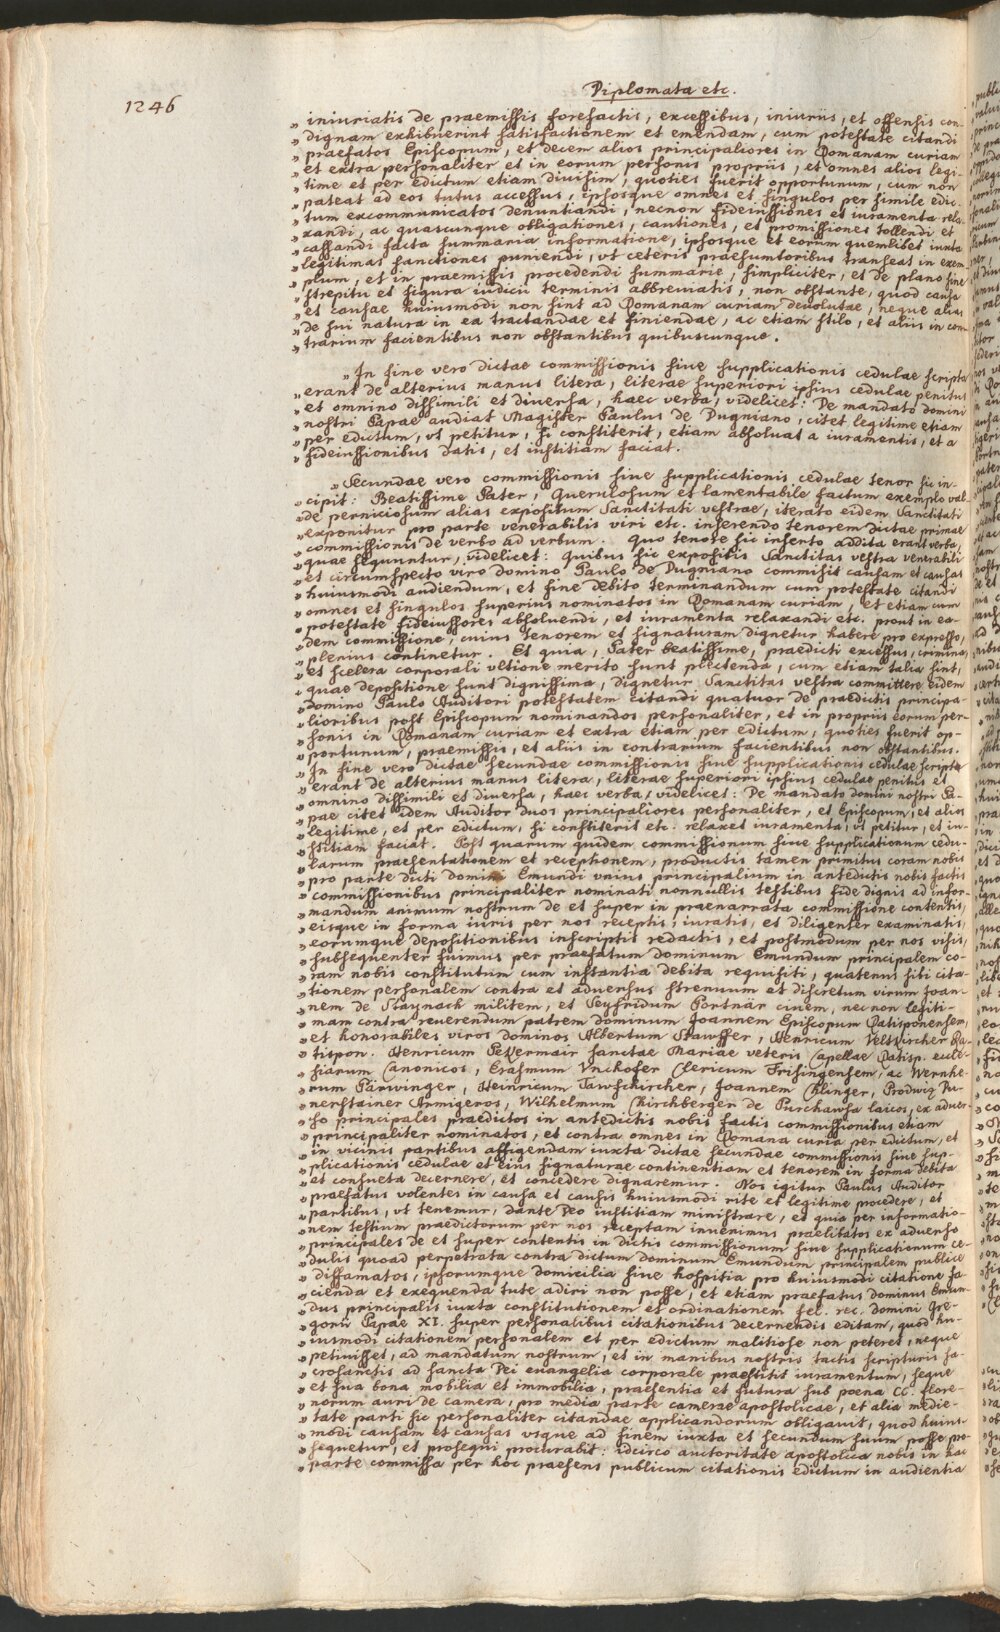 Diplomata etc.
1246
„ iniuriatis de praemissis forefactis, excessibus, iniuriis, et offensis con-
„ dignam exhibuerint satisfactionem et emendam, cum potestate citandi
„ praefatos Episcopum, et decem alios principaliores in Romanam curiam
„ et extra personaliter et in eorum personis propriis, et omnes alios legi-
„ time et per edictum etiam divisim, quoties fuerit opportunum, cum non
„ pateat ad eos tutus accessus, ipsosque omnes et singulos per simile edic-
„ tum excommunicatos denuntiandi, necnon fideiussiones et iuramenta rela-
„ xandi, ac quascunque obligationes, cautiones, et promissiones tollendi et
„ cassandi facta summaria informatione, ipsosque et eorum quemlibet iuxta
„ legitimas sanctiones puniendi, ut ceteris praesumtoribus transeat in exem-
„ plum, et in praemissis procedendi summarie, simpliciter, et de plano sine
„ strepitu et figura iudicii terminis abbreviatis, non obstante, quod causa
„ et causae huiusmodi non sint ad Romanam curiam devolutae, neque alias
„ de sui natura in ea tractandae et finiendae, ac etiam stilo, et aliis in con-
„ trarium facientibus non obstantibus quibuscunque.
„ In fine vero dictae commissionis sive supplicationis cedulae scripta
„ erant de alterius manus litera, literae superiori ipsius cedulae penitus
„ et omnino dissimili et diversa, haec verba, videlicet: De mandato domini
„ nostri Papae audiat Magister Paulus de Dugniano, citet legitime etiam
„ per edictum, ut petitur, si constiterit, etiam absolvat a iuramentis, et a
„ fideiussionibus datis, et iustitiam faciat.
„ Secundae vero commissionis sive supplicationis cedulae tenor sic in-
„ cipit: Beatissime Pater, Querulosum et lamentabile factum exemplo val-
„ de perniciosum alias expositum Sanctitati vestrae, iterato eidem Sanctitati
„ exponitur pro parte venerabilis viri etc. inserendo tenorem dictae primae
„ commissionis de verbo ad verbum. Quo tenore sic inserto addita erant verba,
„ quae sequuntur, videlicet: quibus sic expositis Sanctitas vestra venerabili
„ et circumspecto viro domino Paulo de Dugniano commisit causam et causas
„ huiusmodi audiendum, et fine debito terminandum cum potestate citandi
„ omnes et singulos superius nominatos in Romanam curiam, et etiam cum
„ potestate fideiussores absolvendi, et iuramenta relaxandi etc. prout in ea-
„ dem commissione, cuius tenorem et signaturam dignetur habere pro expresso,
„ plenius continetur. Et quia, Pater beatissime, praedicti excessus, crimina,
„ et scelera corporali ultione merito sunt plectenda, cum etiam talia sint,
„ quae depositione sunt dignissima, dignetur Sanctitas vestra committere eidem
„ domino Paulo Auditori potestatem citandi quatuor de praedictis principa-
„ lioribus post Episcopum nominandos personaliter, et in propriis eorum per-
„ sonis in Romanam curiam et extra etiam per edictum, quoties fuerit op-
„ portunum, praemissis, et aliis in contrarium facientibus non obstantibus.
„ In fine vero dictae secundae commissionis sive supplicationis cedulae scripta
„ erant de alterius manus litera, literae superiori ipsius cedulae penitus et
„ omnino dissimili et diversa, haec verba, videlicet: De mandato domini nostri Pa-
„ pae citet idem Auditor duos principaliores personaliter, et Episcopum, et alios
„ legitime, et per edictum, si constiterit etc. relaxet iuramenta, ut petitur, et iu-
„ stitiam faciat. Post quarum quidem commissionum sive supplicationum cedu-
„ larum praesentationem et receptionem, productis tamen primitus coram nobis
„ pro parte dicti domini Emundi unius principalium in antedictis nobis factis
„ commissionibus principaliter nominati nonnullis testibus fide dignis ad infor-
„ mandum animum nostrum de et super in praenarrata commissione contentis,
„ eisque in forma iuris per nos receptis, iuratis, et diligenter examinatis,
„ eorumque depositionibus inscriptis redactis, et postmodum per nos visis,
„ subsequenter fuimus per praefatum dominum Emundum principalem co-
„ ram nobis constitutum cum instantia debita requisiti, quatenus sibi cita-
„ tionem personalem contra et adversus strenuum et discretum virum Joan-
„ nem de Staynach militem, et Seyfridum Portnär civem, nec non legiti-
„ mam contra reverendum patrem dominum Joannem Episcopum Ratisponensem,
„ et honorabiles viros dominos Albertum Stawffer, Henricum Veltkircher Ra-
„ tispon. Henricum Pekermair sanctae Mariae veteris Capellae Ratisp. eccle-
„ siarum Canonicos, Erasmum Unckofer Clericum Frisingensem, ac Wernhe-
„ rum Pärwinger, Heinricum Tawfskircher, Joannem Clinger, Prodwiz Pu-
„ nerstainer Armigeros, Wilhelmum Chirchberger de Purchawsa laicos, ex adver-
„ so principales praedictos in antedictis nobis factis commissionibus etiam
„ principaliter nominatos, et contra omnes in Romana curia per edictum, et
„ in vicinis partibus affigendam iuxta dictae secundae commissionis sive sup-
„ plicationis cedulae et eius signaturae continentiam et tenorem in forma debita
„ et consueta decernere, et concedere dignaremur. Nos igitur Paulus Auditor
„ praefatus volentes in causa et causis huiusmodi rite et legitime procedere, et
„ partibus, ut tenemur, dante Deo iustitiam ministrare, et quia per informatio-
„ nem testium praedictorum per nos receptam invenimus praelibatos ex adverso
„ principales de et super contentis in dictis commissionum sive supplicationum ce-
„ dulis quoad perpetrata contra dictum dominum Emundum principalem publice
„ diffamatos, ipsorumque domicilia sive hospitia pro huiusmodi citatione fa-
„ cienda et exequenda tute adiri non posse, et etiam praefatus dominus Emun-
„ dus principalis iuxta constitutionem et ordinationem fel. rec. domini Gre-
„ gorii Papae XI. super personalibus citationibus decernendis editam, quod hu-
„ iusmodi citationem personalem et per edictum malitiose non peteret, neque
„ petivisset, ad mandatum nostrum, et in manibus nostris tactis scripturis sa-
„ crosanctis ad sancta Dei evangelia corporale praestitit iuramentum, seque
„ et sua bona mobilia et immobilia, praesentia et futura sub poena CC. flore-
„ norum auri de camera, pro media parte camerae apostolicae, et alia medie-
„ tate parti sic personaliter citandae applicandorum obligavit, quod huius-
„ modi causam et causas usque ad finem iuxta et secundum suum posse pro-
„ sequetur, et prosequi procurabit: idcirco auctoritate apostolica nobis in hac
„ parte commissa per hoc praesens publicum citationis edictum in audientia